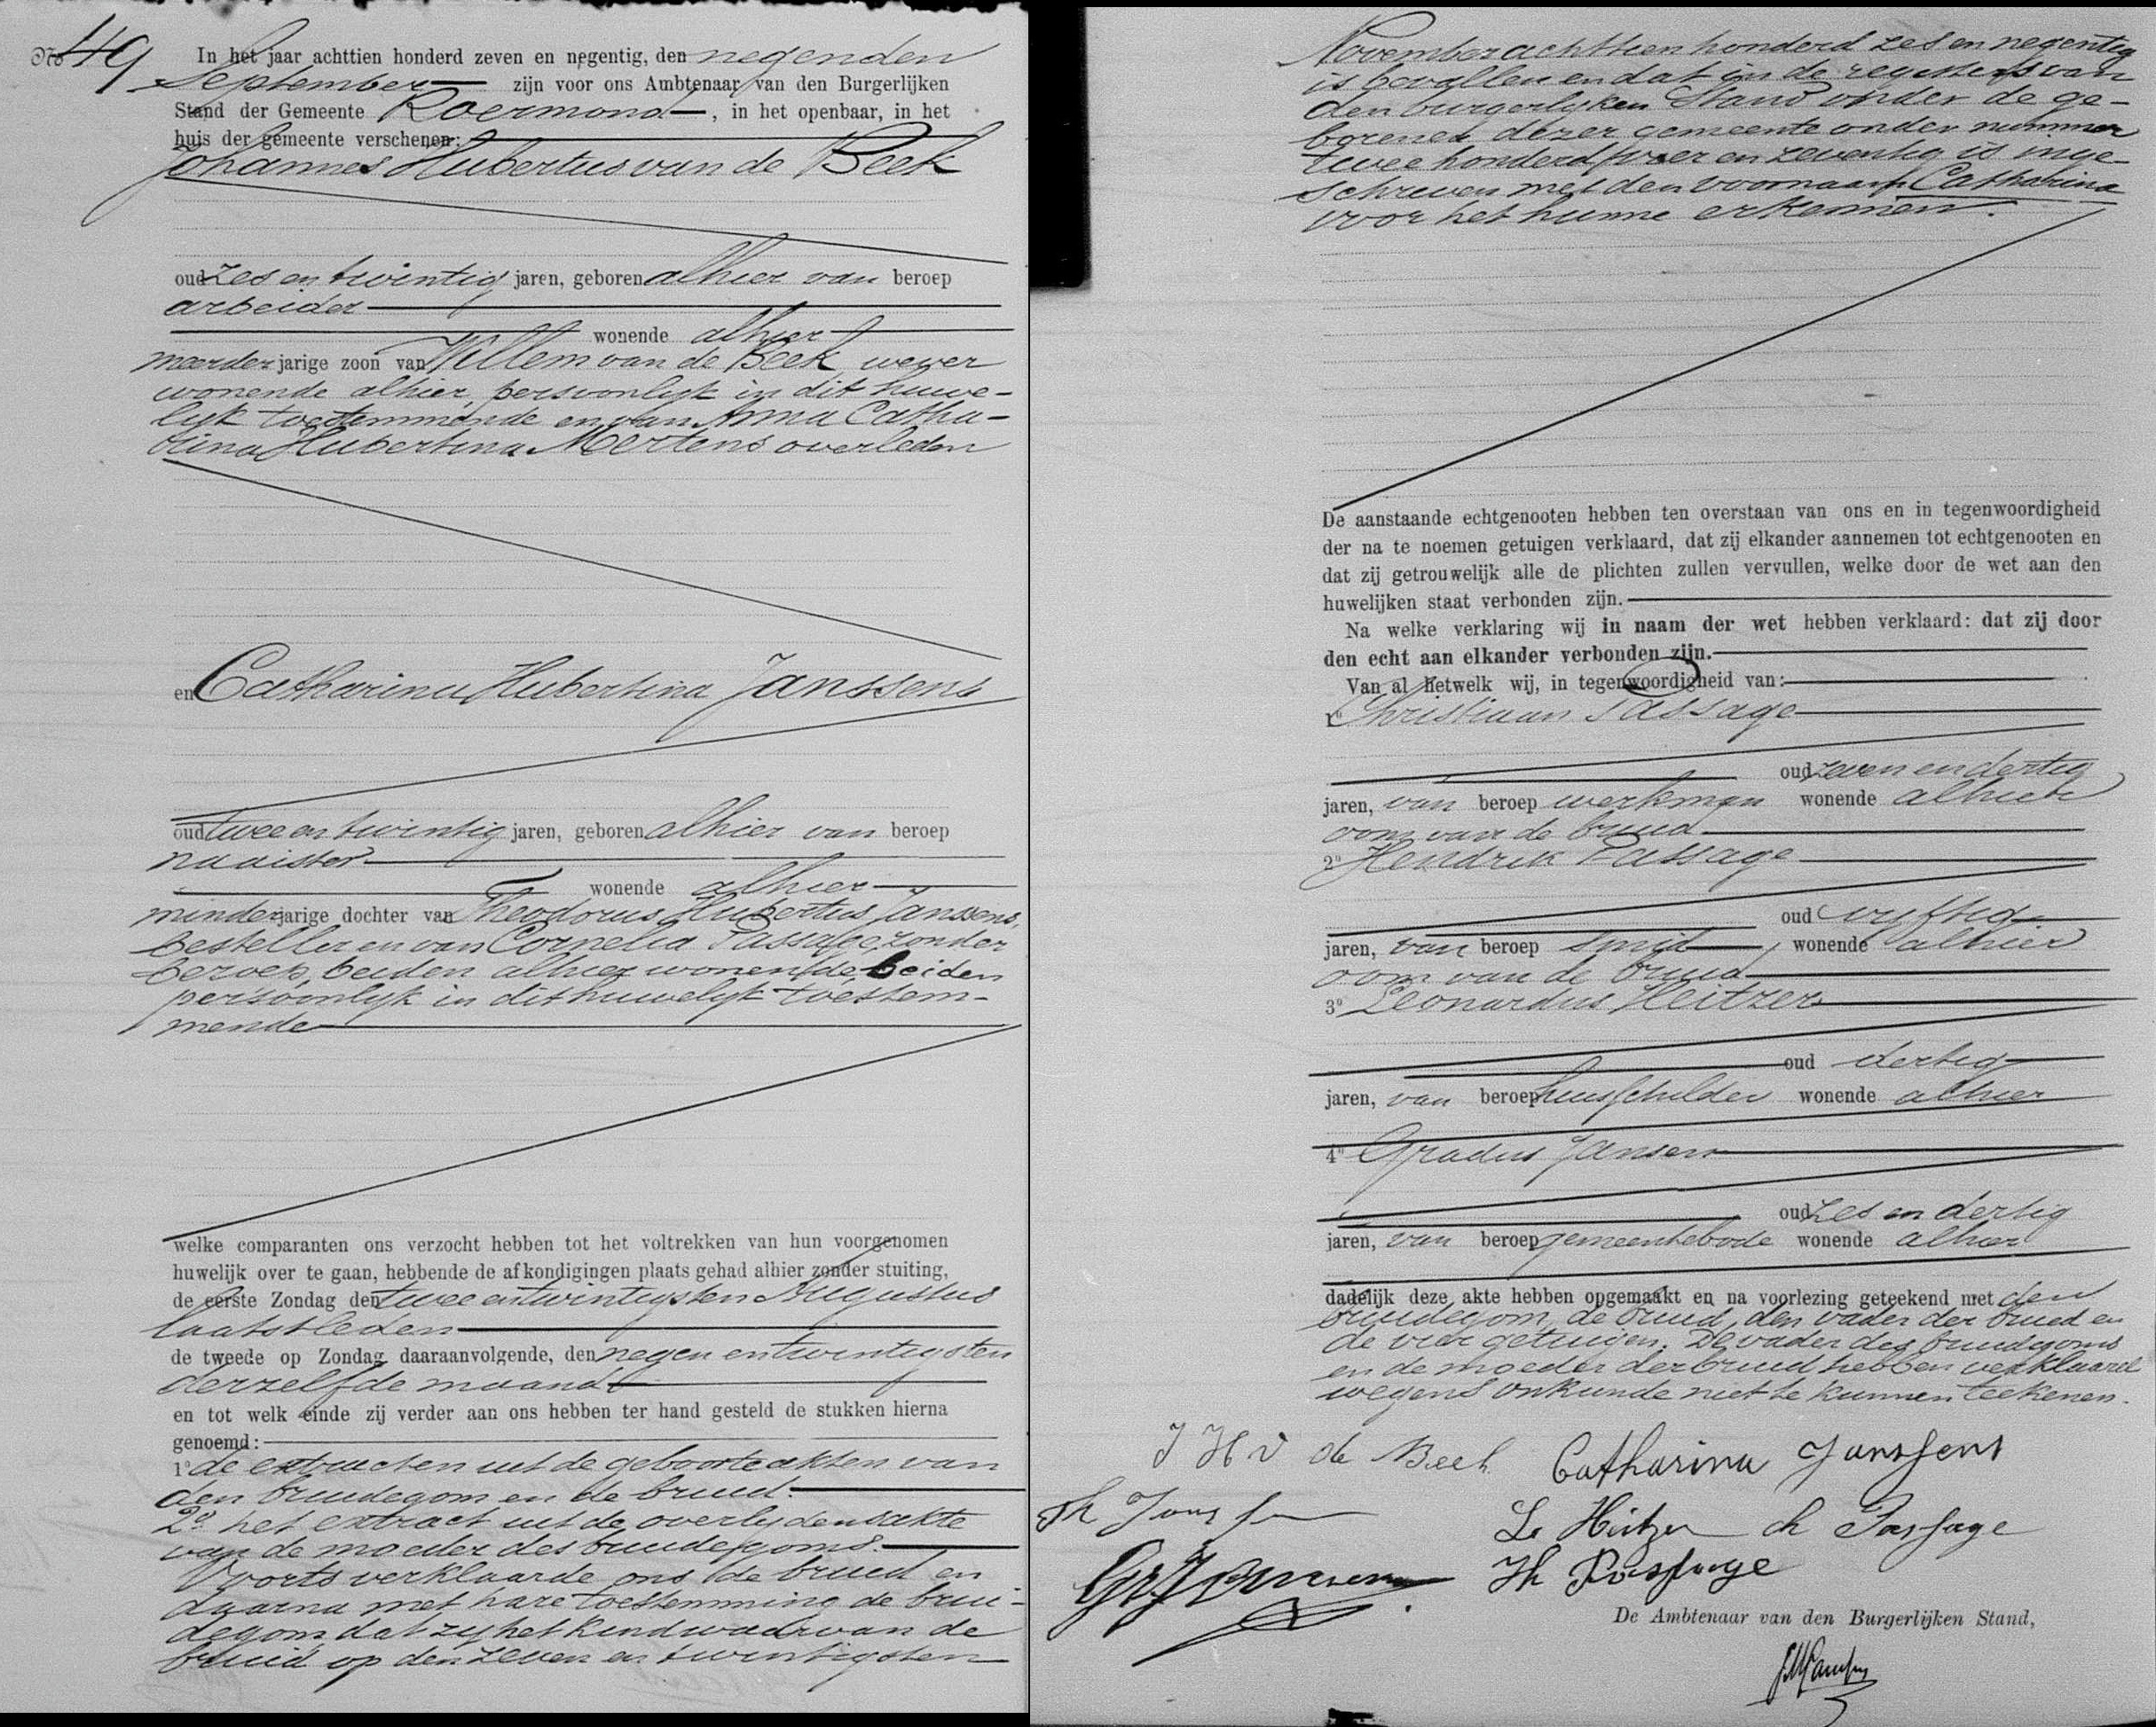 No 49
In het jaar achttien honderd zeven en negentig, den negenden
September zijn voor ons Ambtenaar van den Burgerlijken
Stand der Gemeente Roermond, in het openbaar, in het
huis der gemeente verschenen:
Johannes Hubertus van de Beek
oud zes en twintig jaren, geboren alhier van beroep
arbeider
wonende alhier
meerderjarige zoon van Willem van de Beek, wever
wonende alhier, persoonlijk in dit huwe-
lijk toestemmende en van Anna Catha-
rina Hubertina Mertens overleden
en Catharina Hubertina Janssens
oud twee en twintig jaren, geboren alhier van beroep
naaister
wonende alhier
minderjarige dochter van Theodorus Hubertus Janssens,
besteller en van Cornelia Passage, zonder
beroep, beiden alhier wonende, beiden
persoonlijk in dit huwelijk toestem-
mende
welke comparanten ons verzocht hebben tot het voltrekken van hun voorgenomen
huwelijk over te gaan, hebbende de afkondigingen plaats gehad alhier zonder stuiting,
de eerste Zondag den twee entwintigsten Augustus
laatstleden
de tweede op Zondag daaraanvolgende, den negen entwintigsten
derzelfde maand
en tot welk einde zij verder aan ons hebben ter hand gesteld de stukken hierna
genoemd:
1o de extracten uit de geboorteakten van
den bruidegom en de bruid.
2o het extract uit de overlijdensakte
van de moeder des bruidegoms.
Voorts verklaarde ons de bruid en
daarna met hare toestemming de brui-
degom dat zij het kind waarvan de
bruid op den zeven en twintigsten
November achttien honderd zes en negentig
is bevallen en dat in de registers van
den burgerlijken Stand onder de ge-
borenen dezer gemeente onder nummer
twee honderd vier en zeventig is inge-
schreven met den voornaam Catharina
voor het hunne erkennen.
De aanstaande echtgenooten hebben ten overstaan van ons en in tegenwoordigheid
der na te noemen getuigen verklaard, dat zij elkander aannemen tot echtgenooten en
dat zij getrouwelijk alle de plichten zullen vervullen, welke door de wet aan den
huwelijken staat verbonden zijn.
Na welke verklaring wij in naam der wet hebben verklaard: dat zij door
den echt aan elkander verbonden zijn.
Van al hetwelk wij, in tegenwoordigheid van:
1o Christiaan Passage
oud zeven en dertig
jaren, van beroep werkman wonende alhier
oom van de bruid
2o Hendrik Passage
oud vijftig
jaren, van beroep smid, wonende alhier
oom van de bruid
3o Leonardus Heitzer
oud dertig
jaren, van beroep huisschilder wonende alhier
4o Gradus Jansen
oud zes en dertig
jaren, van beroep gemeentebode wonende alhier
dadelijk deze akte hebben opgemaakt en na voorlezing geteekend met den
bruidegom, de bruid, den vader der bruid en
de vier getuigen. De vader des bruidegoms
en de moeder der bruid hebben verklaard
wegens onkunde niet te kunnen teekenen.
J H v de Beek Catharina Janssens
Th Janssen
Le Heitzer Ch Passage
Gr Jansen
H Passage
De Ambtenaar van den Burgerlijken Stand,